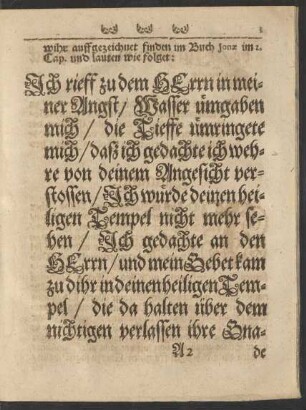 3
wihr auffgezeichnet finden im Buch Jonæ im 2.
Cap. und lauten wie folget:
Ich rieff zu dem HErrn in mei-
ner Angst / Wasser ümgaben
mich / die Tieffe ümringete
mich / daß ich gedachte ich weh-
re von deinem Angesicht ver-
stossen / Ich würde deinen hei-
ligen Tempel nicht mehr se-
hen / Ich gedachte an den
HErrn / und mein Gebet kam
zu dihr in deinen heiligen Tem-
pel / die da halten über dem
nichtigen verlassen ihre Gna-
A2 de